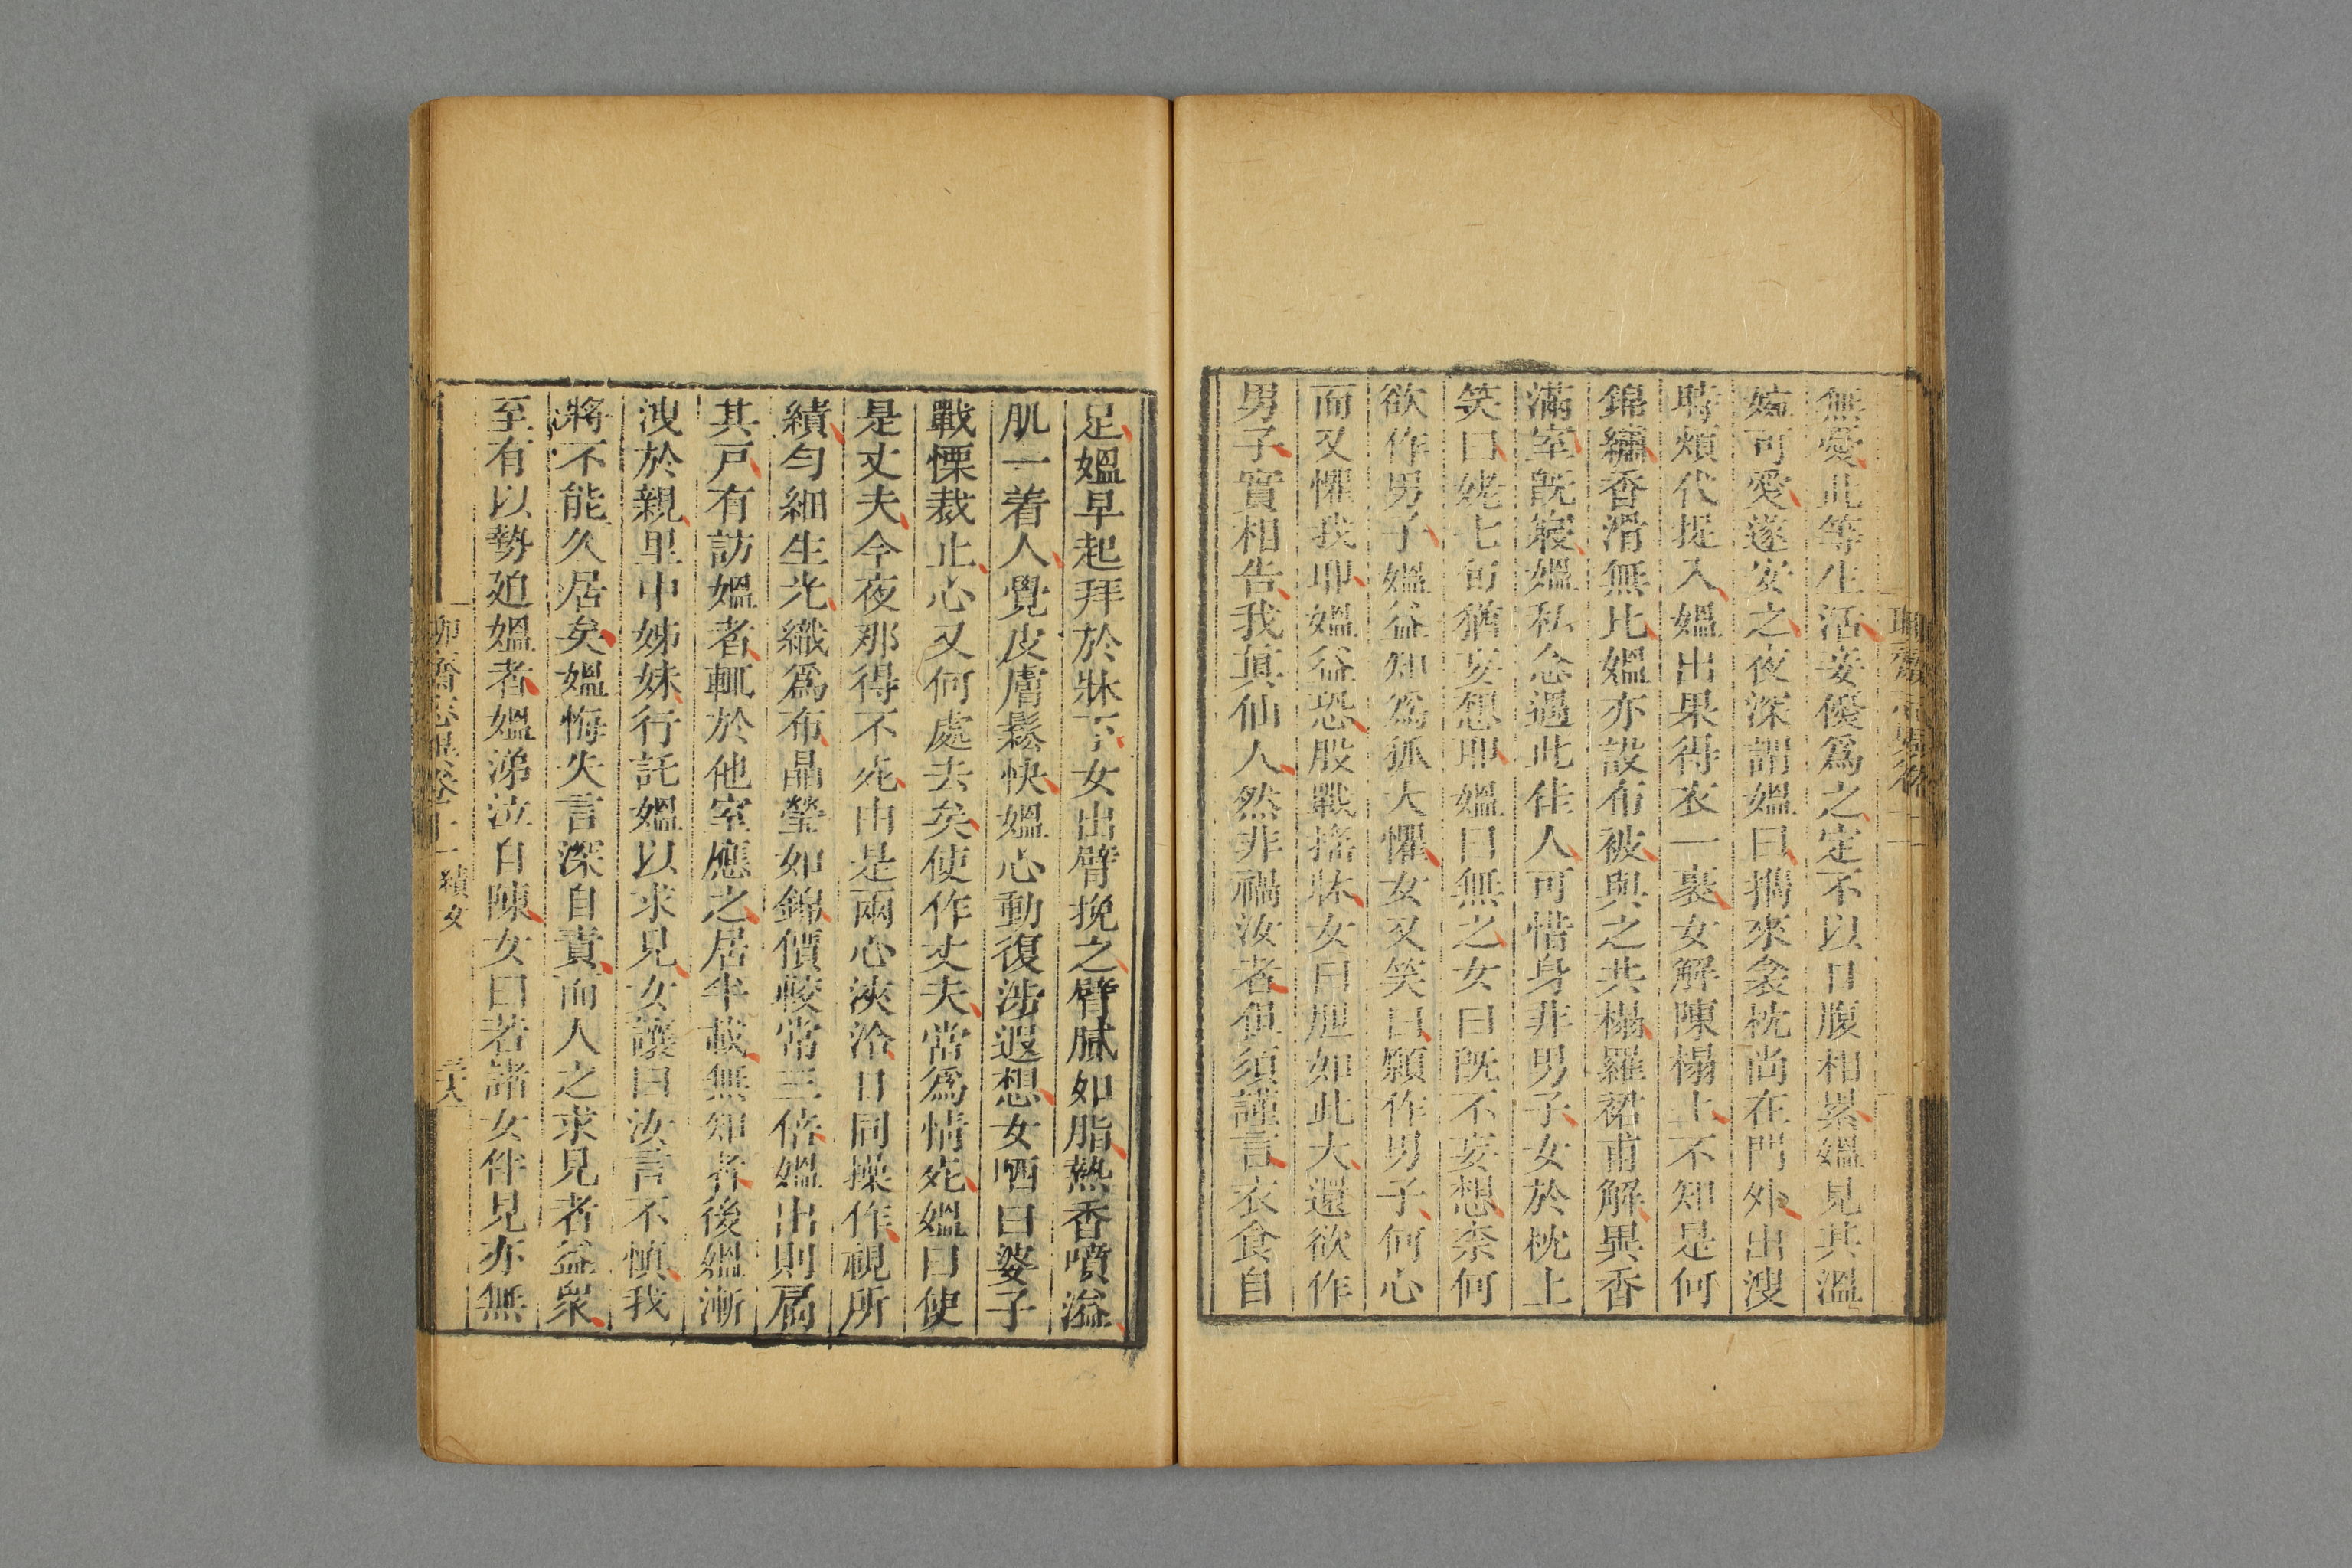 無憂此等生活妾優爲之定不以口腹相累媼見其溫
婉可愛遂安之夜深謂媼曰攜來衾枕尚在門外出溲
時煩代捉入媼出果得衣一裹女解陳榻上不知是何
錦繡香滑無比媼亦設布被與之共榻羅裙甫解異香
滿室旣寢媼私念遇此佳人可惜身非男子女於枕上
笑曰姥七旬猶妄想耶媼曰無之女曰旣不妄想柰何
欲作男子媼益知爲狐大懼女又笑曰願作男子何心
而又懼我耶媼益恐股戰搖牀女曰胆如此大還欲作
男子實相告我眞仙人然非禍汝者但須謹言衣食自
足媼早起拜於牀下女出臂挽之臂膩如脂熱香噴溢
肌一着人覺皮膚鬆快媼心動復涉遐想女哂曰婆子
戰慄裁止心又何處去矣使作丈夫當爲情死媼曰使
是丈夫今夜那得不死由是兩心浹洽日同操作視所
績勻細生光織爲布晶瑩如錦價較常三倍媼出則扃
其戶有訪媼者輒於他室應之居半載無知者後媼漸
洩於親里中姊妹行託媼以求見女讓曰汝言不慎我
將不能久居矣媼悔失言深自責而人之求見者益衆
至有以勢廹媼者媼涕泣自陳女曰若諸女伴見亦無
聊齋志異卷十一 績女 三六